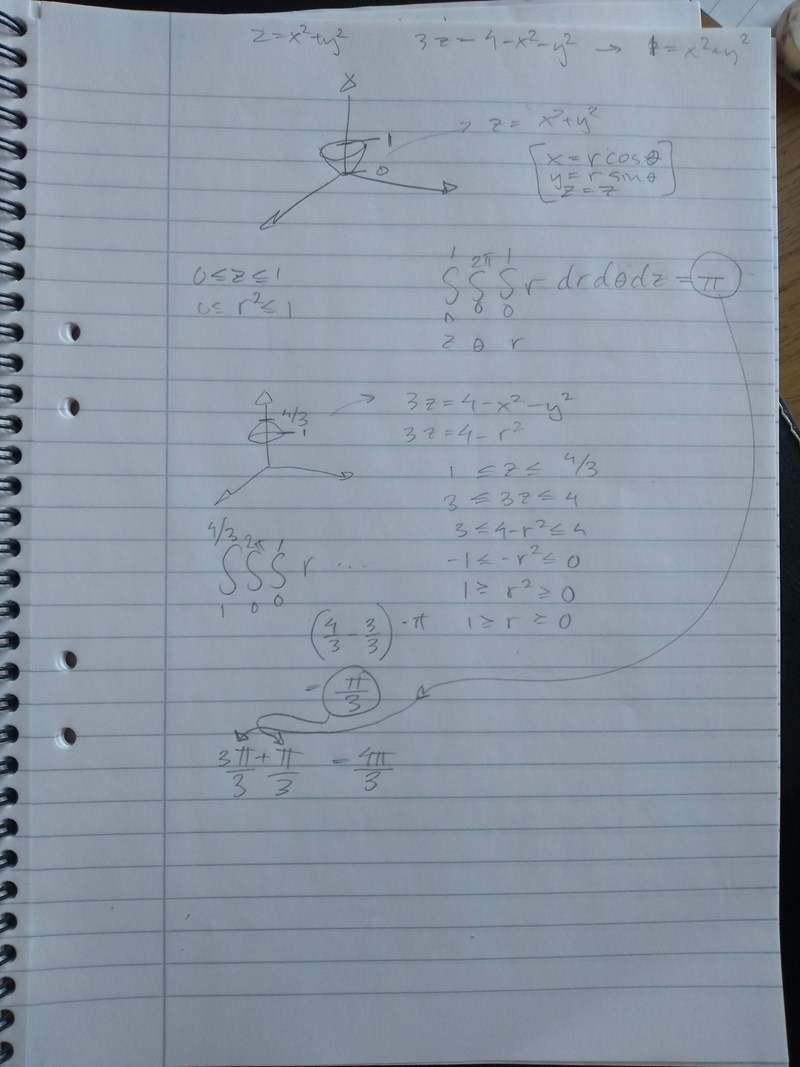 z = x² + y² 3z = 4 - x² - y² → 1 = x² + y²
1
→ z = x² + y²
0
[x = r cos θ
y = r sin θ
z = z]
0 ≤ z ≤ 1
0 ≤ r² ≤ 1
∫₀¹ ∫₀²π ∫₀¹ r dr dθ dz = π
z θ r
4/3
1
→ 3z = 4 - x² - y²
3z = 4 - r²
1 ≤ z ≤ 4/3
3 ≤ 3z ≤ 4
3 ≤ 4 - r² ≤ 4
-1 ≤ -r² ≤ 0
1 ≥ r² ≥ 0
1 ≥ r ≥ 0
∫₁^4/3 ∫₀^2π ∫₀¹ r ...
(4/3 - 3/3) · π
= π/3
3π/3 + π/3 = 4π/3